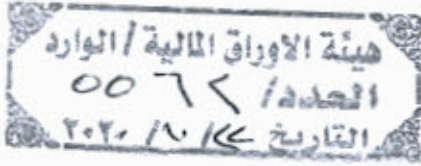 هيئة الاوراق المالية / الوارد
العدد / ٥٥٦٢
التاريخ / / ٢٠٢٠